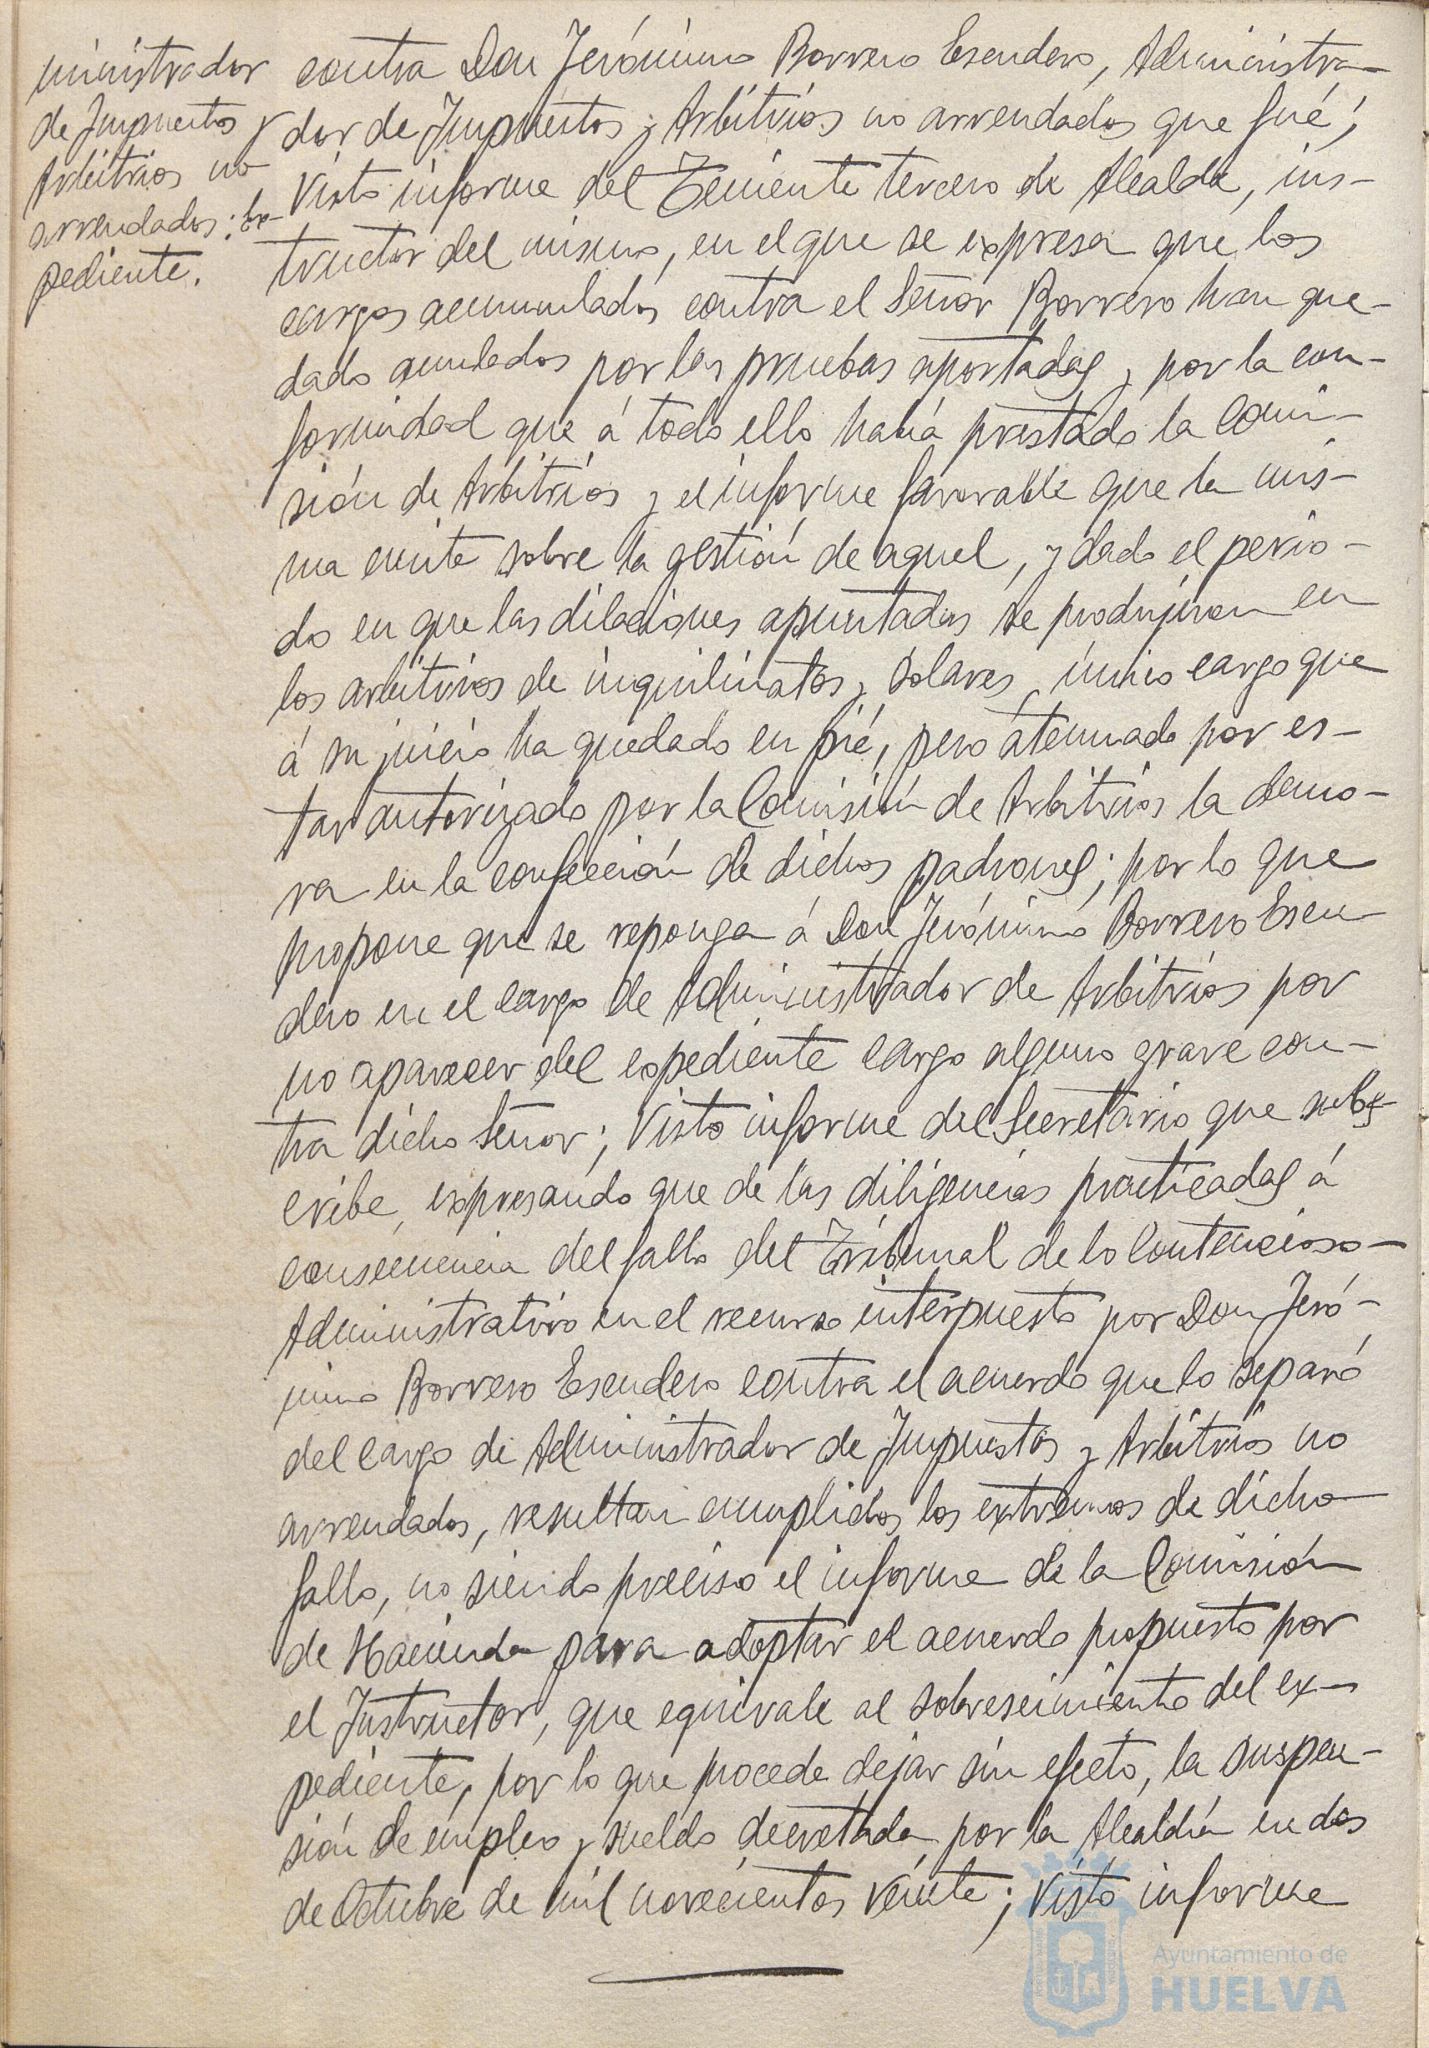 ministrador
de Impuestos y
Arbitrios no
arrendados: Ex-
pediente.
contra Don Jerónimo Borrero Escudero, Administra-
dor de Impuestos y Arbitrios no arrendados que fué;
Visto informe del Teniente tercero de Alcalde, ins-
tructor del mismo, en el que se expresa que los
cargos acumulados contra el Señor Borrero han que-
dado anulados por las pruebas aportadas y por la con-
formidad que á todo ello había prestado la Comi-
sión de Arbitrios y el informe favorable que la mis-
ma emite sobre la gestión de aquel, y dado el perio-
do en que las dilaciones apuntadas se produjeron en
los arbitrios de inquilinatos y Solares, único cargo que
á su juicio ha quedado en pié, pero atenuado por es-
tar autorizado por la Comisión de Arbitrios la demo-
ra en la confección de dichos padrones; por lo que
propone que se reponga á Don Jerónimo Borrero Escu
dero en el cargo de Administrador de Arbitrios por
no aparecer del expediente cargo alguno grave con-
tra dicho Señor; Visto informe del Secretario que subs-
cribe, expresando que de las diligencias practicadas á
consecuencia del fallo del Tribunal de lo Contencioso-
Administrativo en el recurso interpuesto por Don Jeró-
nimo Borrero Escudero contra el acuerdo que lo separó
del cargo de Administrador de Impuestos y Arbitrios no
arrendados, resultan cumplidos los extremos de dicho
fallo, no siendo preciso el informe de la Comisión
de Hacienda para adoptar el acuerdo propuesto por
el Instructor, que equivale al sobreseimiento del ex-
pediente, por lo que procede dejar sin efecto, la suspen-
sión de empleo y sueldo decretada por la Alcaldía en dos
de Octubre de mil novecientos veinte; Visto informe
Ayuntamiento de
HUELVA